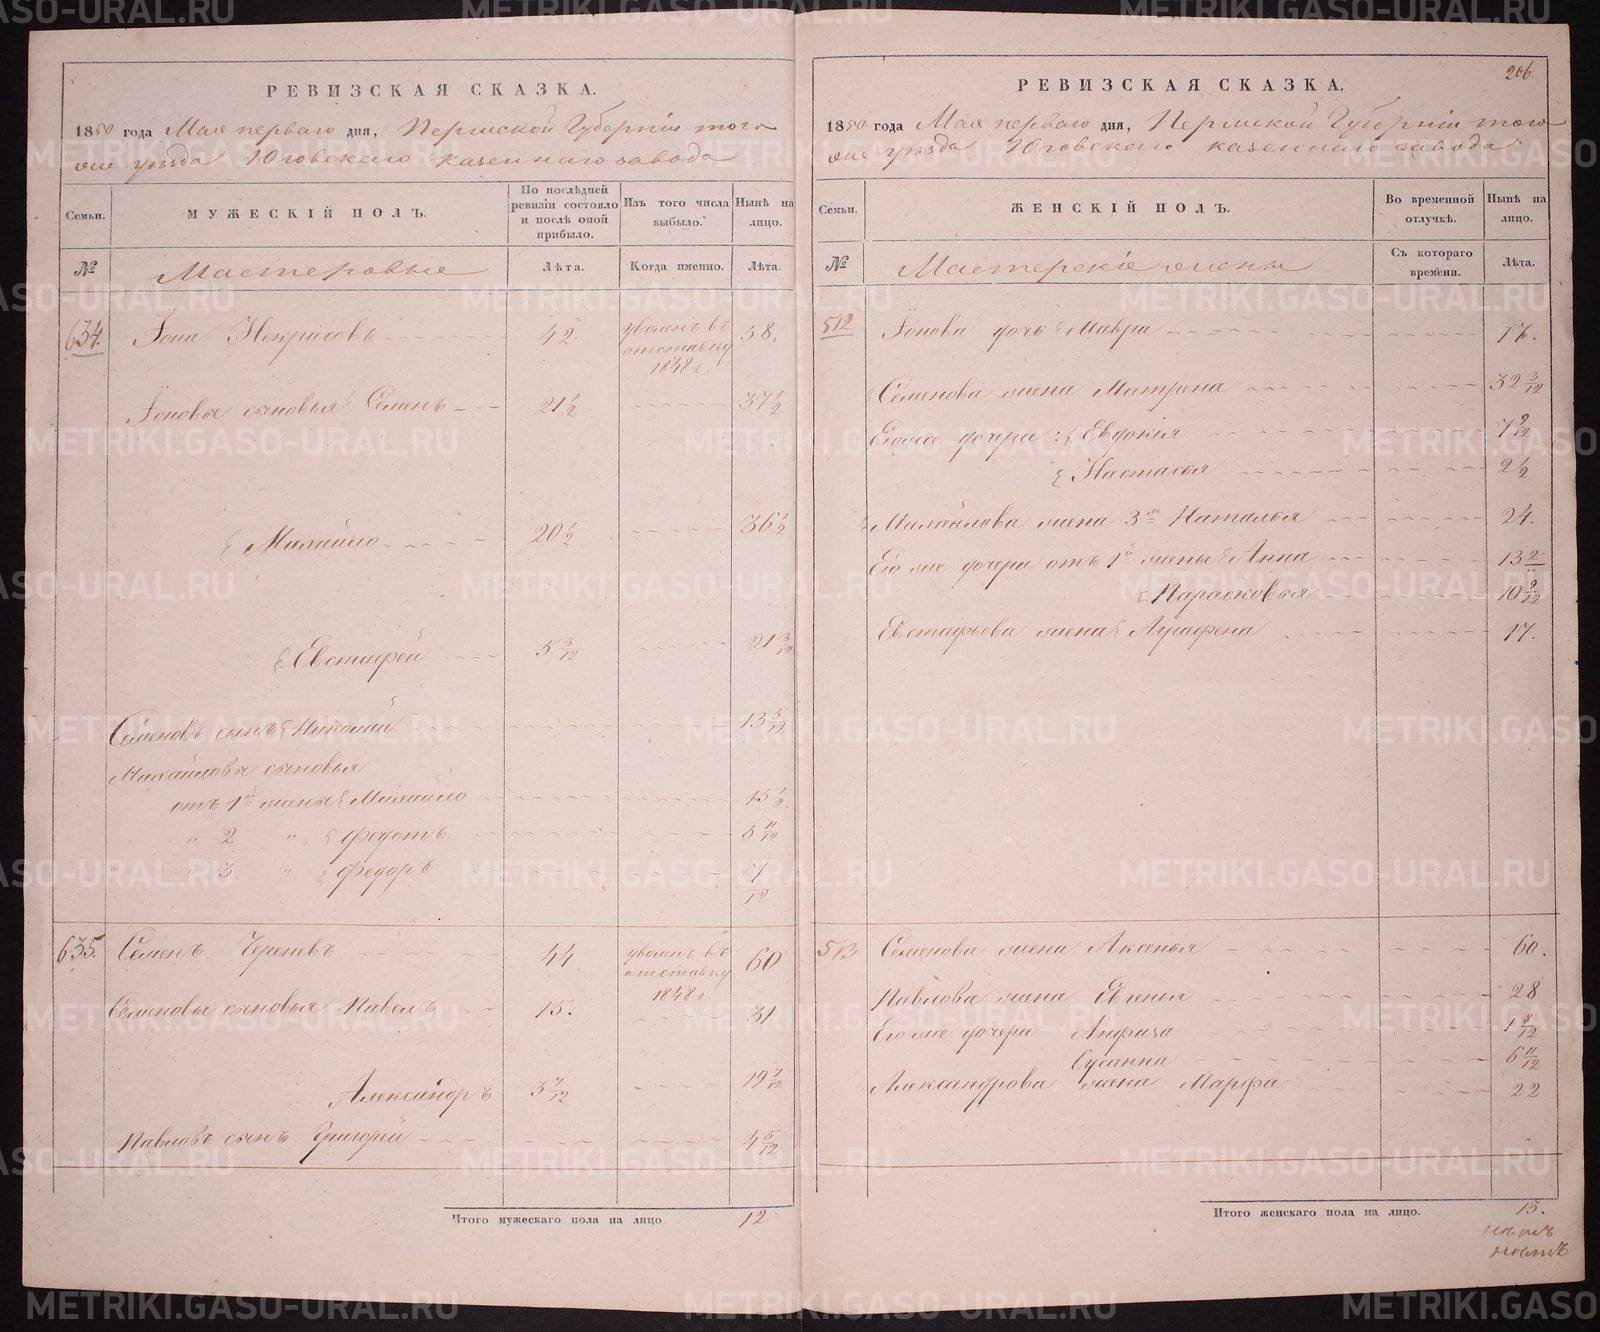 РЕВИЗСКАЯ СКАЗКА.
1850 года Мая перваго дня, Пермской Губерніи того
же уѣзда Юговскаго казеннаго завода
Семьи.
МУЖЕСКІЙ ПОЛЪ.
По послѣдней ревизіи состояло и послѣ оной прибыло.
Изъ того числа выбыло.
Нынѣ на лицо.
№
Мастеровые
Лѣта.
Когда именно.
Лѣта.
634. Іона Некрасовъ 42 уволенъ въ отставку 1848 г. 58.
Іоновы сыновья Семенъ 21 1/2 37 1/2
Михайло 20 1/2 36 1/2
Евстафей 5 3/12 21 3/12
Семеновъ сынъ Николай 13 5/12
Михайловы сыновья
отъ 1й жены Михайло 15 1/2
" 2 " Федотъ 5 11/12
" 3 " Федоръ 7/12
635. Семенъ Черневъ 44 уволенъ въ отставку 1848 г. 60
Семеновы сыновья Павелъ 15. 31
Александръ 3 7/12 19 7/12
Павловъ сынъ Григорей 4 5/12
Итого мужескаго пола на лицо 12
206.
РЕВИЗСКАЯ СКАЗКА.
1850 года Мая перваго дня, Пермской Губерніи того
же уѣзда Юговскаго казеннаго завода
Семьи.
ЖЕНСКІЙ ПОЛЪ.
Во временной отлучкѣ.
Нынѣ на лицо.
№
Мастерскіе жены
Съ котораго времени.
Лѣта.
512 Іонова дочь Мавра 17.
Семенова жена Матрена 32 3/12
Его же дочери: Евдокия 7 9/12
Настасья 2 1/2
Михайлова жена 3я Наталья 24.
Его же дочери отъ 1й жены Анна 13 2/12
Парасковья 10 9/12
Евстафьева жена Аграфена 17.
513 Семенова жена Аксенья 60.
Павлова жена Евгенья 28
Его же дочери Анфиса 1 11/12
Сусанна 6 11/12
Александрова жена Марфа 22
Итого женскаго пола на лицо. 13.
METRIKI.GASO-URAL.RU